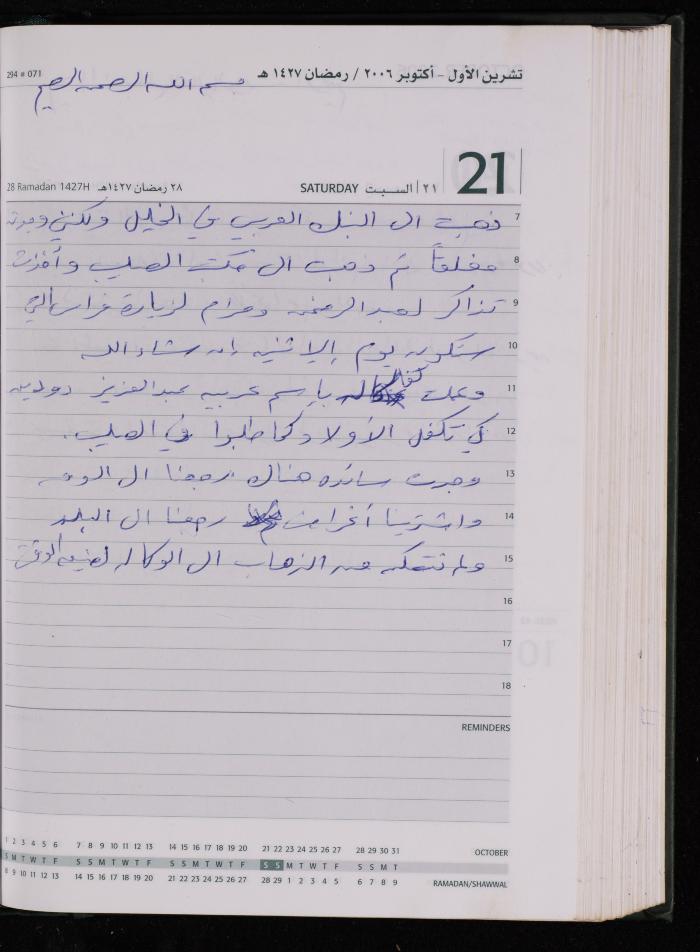 294 # 071
تشرين الأول - أكتوبر ٢٠٠٦ / رمضان ١٤٢٧ هـ
بسم الله الرحمن الرحيم
28 Ramadan 1427H
٢٨ رمضان ١٤٢٧هـ
SATURDAY
٢١ السبت
21
7 ذهبت الى البنك العربي في الخليل ولكني وجدته
8 مغلقاً ثم ذهبت الى مكتب الصليب وأخذت
9 تذاكر لعبد الرحمن ومرام لزيارة فراس التي
10 ستكون يوم الاثنين إن شاء الله
11 وعملت كفالة باسم عربيه عبد العزيز دودين
12 كي تكفل الأولاد كما طلبوا في الصليب.
13 وجدت سائده هناك رجعنا الى
14 واشترينا أغراض رجعنا الى البلد
15 ولم نتمكن من الذهاب الى الوكاله لضيق الوقت
16
17
18
REMINDERS
1 2 3 4 5 6 7 8 9 10 11 12 13 14 15 16 17 18 19 20 21 22 23 24 25 26 27 28 29 30 31 OCTOBER
S M T W T F S S M T W T F S S M T W T F S S M T W T F S S M T
8 9 10 11 12 13 14 15 16 17 18 19 20 21 22 23 24 25 26 27 28 29 1 2 3 4 5 6 7 8 9 RAMADAN/SHAWWAL